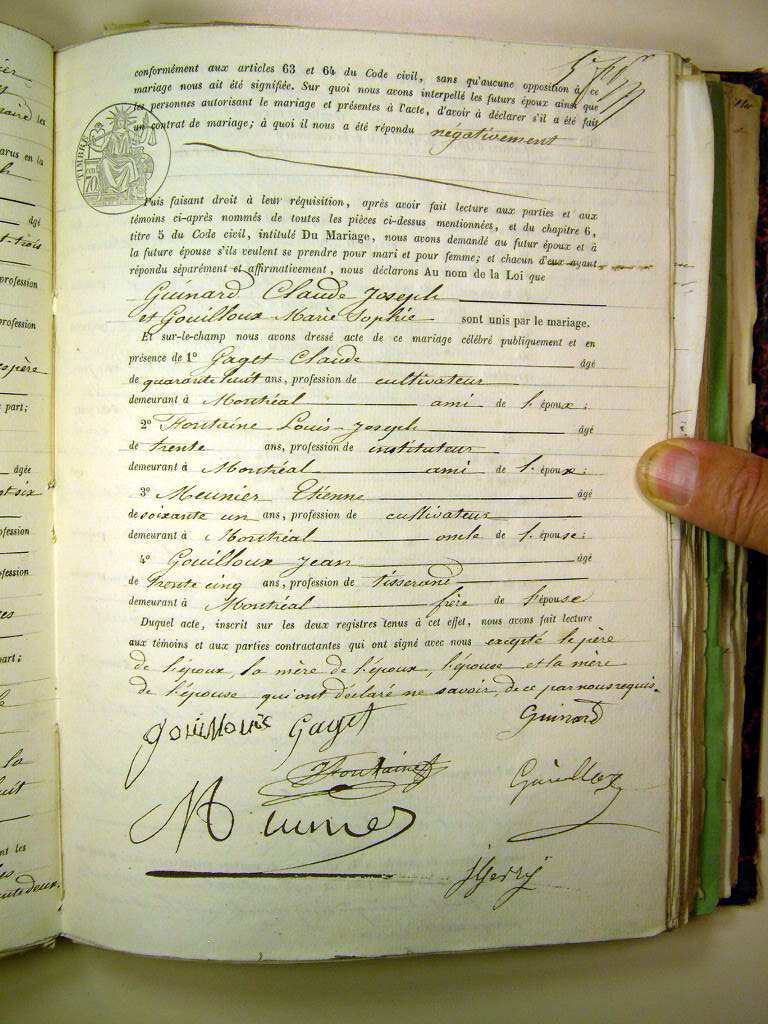 conformément aux articles 63 et 64 du Code civil, sans qu'aucune opposition à ce
mariage nous ait été signifiée. Sur quoi nous avons interpellé les futurs époux ainsi que
les personnes autorisant le mariage et présentes à l'acte, d'avoir à déclarer s'il a été fait
un contrat de mariage; à quoi il nous a été répondu négativement
TIMBRE
Puis faisant droit à leur réquisition, après avoir fait lecture aux parties et aux
témoins ci-après nommés de toutes les pièces ci-dessus mentionnées, et du chapitre 6,
titre 5 du Code civil, intitulé Du Mariage, nous avons demandé au futur époux et à
la future épouse s'ils veulent se prendre pour mari et pour femme; et chacun d'eux ayant
répondu séparément et affirmativement, nous déclarons Au nom de la Loi que
Guinard Claude Joseph
et Gouilloux Marie Sophie sont unis par le mariage.
Et sur-le-champ nous avons dressé acte de ce mariage célébré publiquement et en
présence de 1° Gaget Claude âgé
de quarante huit ans, profession de cultivateur
demeurant à Montréal ami de l'époux;
2° Fontaine Louis-Joseph âgé
de trente ans, profession de instituteur
demeurant à Montréal ami de l'époux;
3° Meunier Etienne âgé
de soixante un ans, profession de cultivateur
demeurant à Montréal oncle de l'épouse;
4° Gouilloux Jean âgé
de trente cinq ans, profession de tisserand
demeurant à Montréal frère de l'épouse
Duquel acte, inscrit sur les deux registres tenus à cet effet, nous avons fait lecture
aux témoins et aux parties contractantes qui ont signé avec nous excepté le père
de l'époux, la mère de l'époux, l'épouse et la mère
de l'épouse qui ont déclaré ne savoir, de ce par nous requis.
Gouilloux Gaget Guinard
Fontaine
Meunier